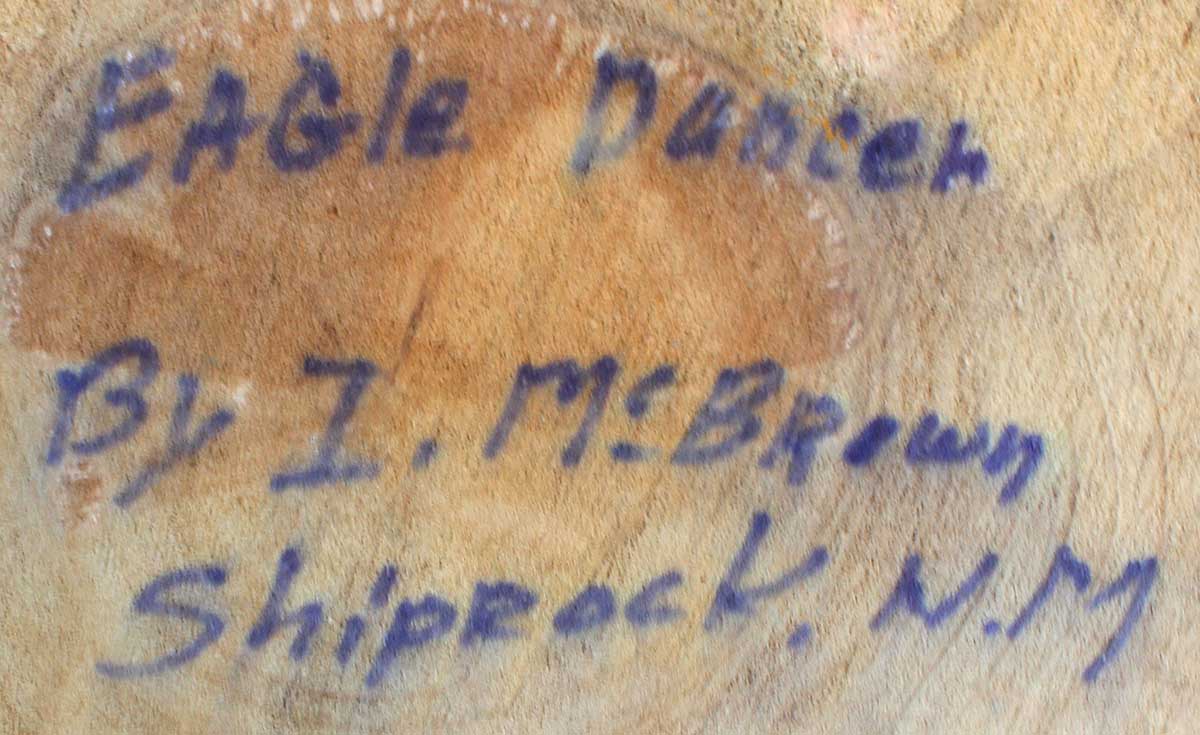 EAGle DanceR
By I. McBRown
ShipRock, N.M